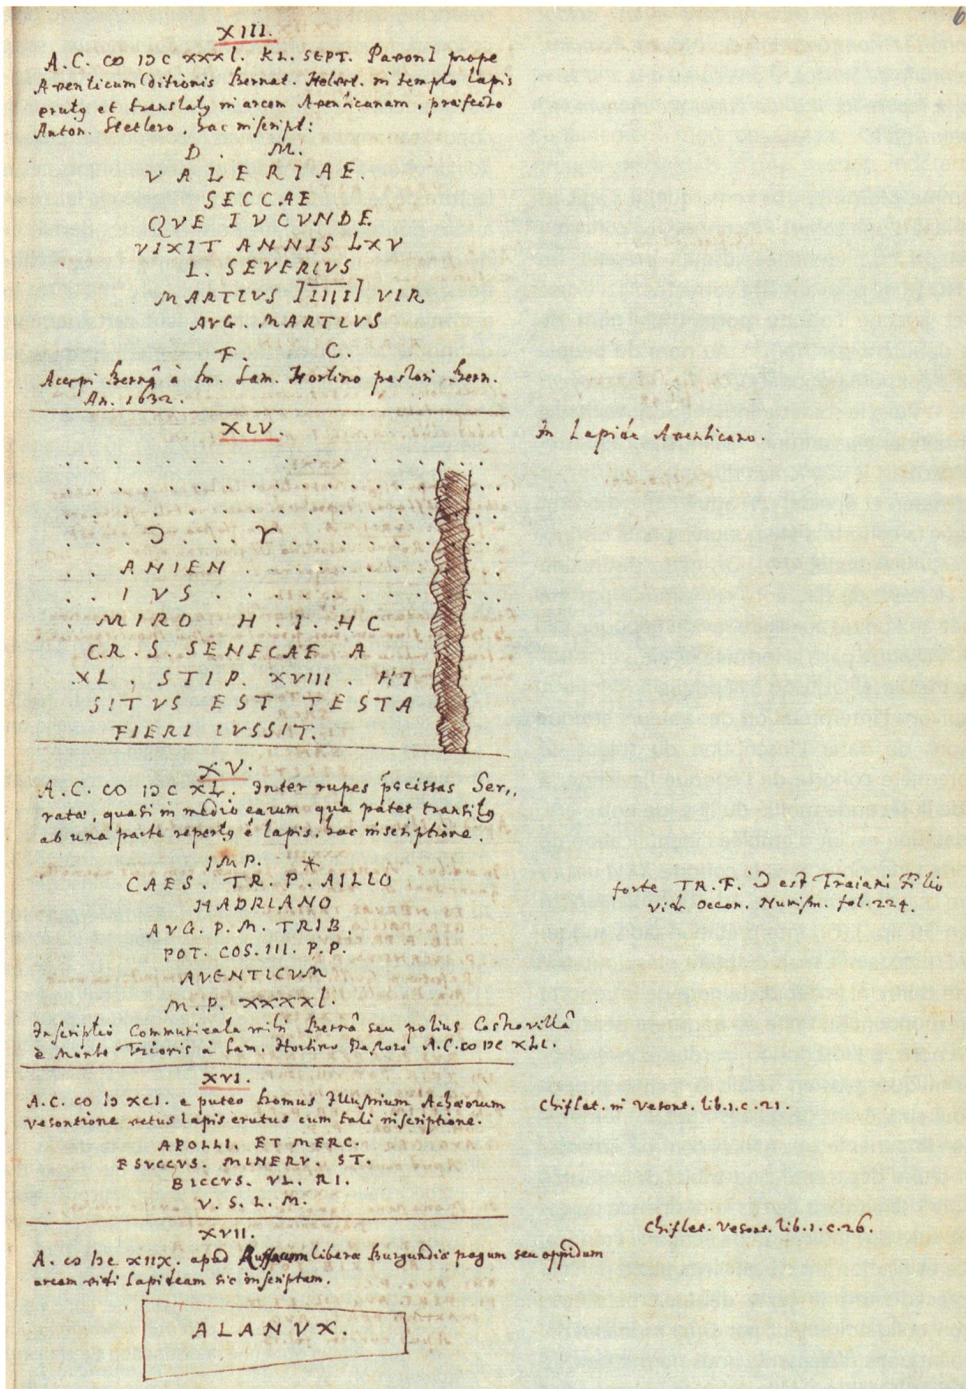 6
XIII.
A.C. CIↃ IↃC XXXI. KL. SEPT. prope
Aventicum Ditionis Bernat. Helvet. in templo lapis
erutus et translatus in arcem Aventicanam, præfecto
Anton. Stetlero, hac inscript:
D. M.
VALERIAE.
SECCAE
QVE IVCVNDE
VIXIT ANNIS LXV
L. SEVERIVS
MARTIVS IIIIII VIR
AVG. MARTIVS
F. C.
Accepi Bernâ à Sam. Hortino pastori Bern.
An. 1632.
XIV.
In Lapide Aventicano.
Ɔ . . . V
ANIEN
IVS
MIRO H. I. HC
C.R. S. SENECAE A
XL. STIP. XVIII. HI
SITVS EST TESTA
FIERI IVSSIT.
XV.
A.C. CIↃ IↃC XL. Inter rupes præcissas Ser,,
ratæ, quasi in medio earum qua patet transitus
ab una parte repertus e lapis, hac inscriptione.
IMP. *
CAES. TR. P. AILLO
HADRIANO
AVG. P. M. TRIB.
POT. COS. III. P. P.
AVENTICVM
M. P. XXXXI.
forte TR. F. id est Traiani Filio
vid. Occon. Numism. fol. 224.
Inscriptio communicata mihi Bernâ seu potius Castrovillâ
è Monte à Sam. Hortino Pastore A.C. CIↃ IↃC XLI.
XVI.
A.C. CIↃ IↃ XCI. e puteo Domus Illustrium Achæorum
Vesontione vetus lapis erutus cum tali inscriptione.
Chiflet. in Vesont. lib. 1. c. 21.
APOLLI. ET MERC.
ESVCCVS. MINERV. ST.
BICCVS. VL. RI.
V. S. L. M.
XVII.
Chiflet. Vesont. lib. 1. c. 26.
A. CIↃ IↃC XIIX. apud Ruffacum liberæ Burgundiæ pagum seu oppidum
arcam vidi lapideam sic inscriptam.
ALANVX.